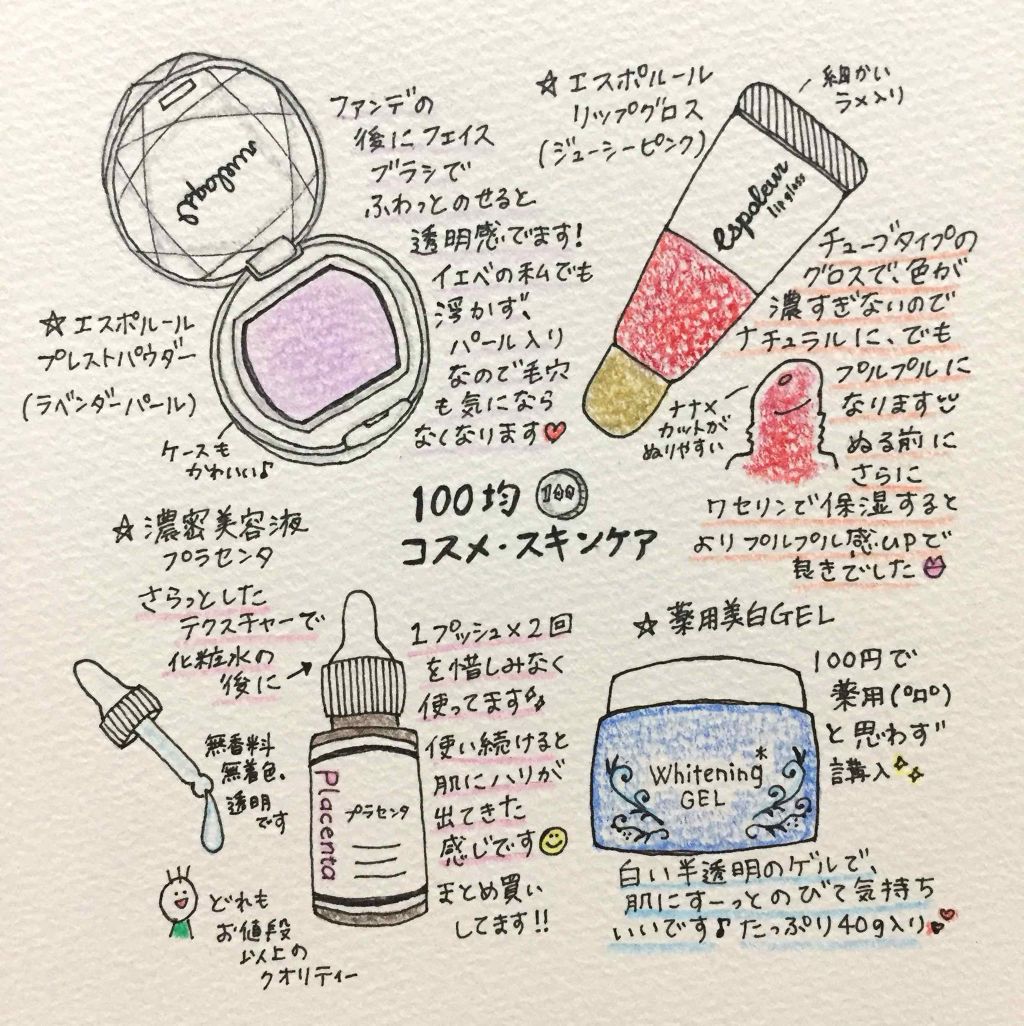 ファンデの
後にフェイス
ブラシで
ふわっとのせると
透明感でます!
イエベの私でも
浮かず、
パール入り
なので毛穴
も気になら
なくなります
☆エスポルール
プレストパウダー
(ラベンダーパール)
ケースも
かわいい♪
☆エスポルール
リップグロス
(ジューシーピンク)
細かい
ラメ入り
espoleur
lip gloss
チューブタイプの
グロスで、色が
濃すぎないので
ナチュラルに、でも
プルプルに
なります
ナナメ
カットが
ぬりやすい
ぬる前に
さらに
ワセリンで保湿すると
よりプルプル感upで
良きでした
100均 100
コスメ・スキンケア
☆濃密美容液
プラセンタ
さらっとした
テクスチャーで
化粧水の
後に→
無香料
無着色、
透明
です
Placenta
プラセンタ
1プッシュ×2回
を惜しみなく
使ってます
使い続けると
肌にハリが
出てきた
感じです
まとめ買い
してます!!
どれも
お値段
以上の
クオリティー
☆薬用美白GEL
100円で
薬用(°ロ°)
と思わず
講入
Whitening*
GEL
白い半透明のゲルで、
肌にすーっとのびて気持ち
いいです♪たっぷり40g入り